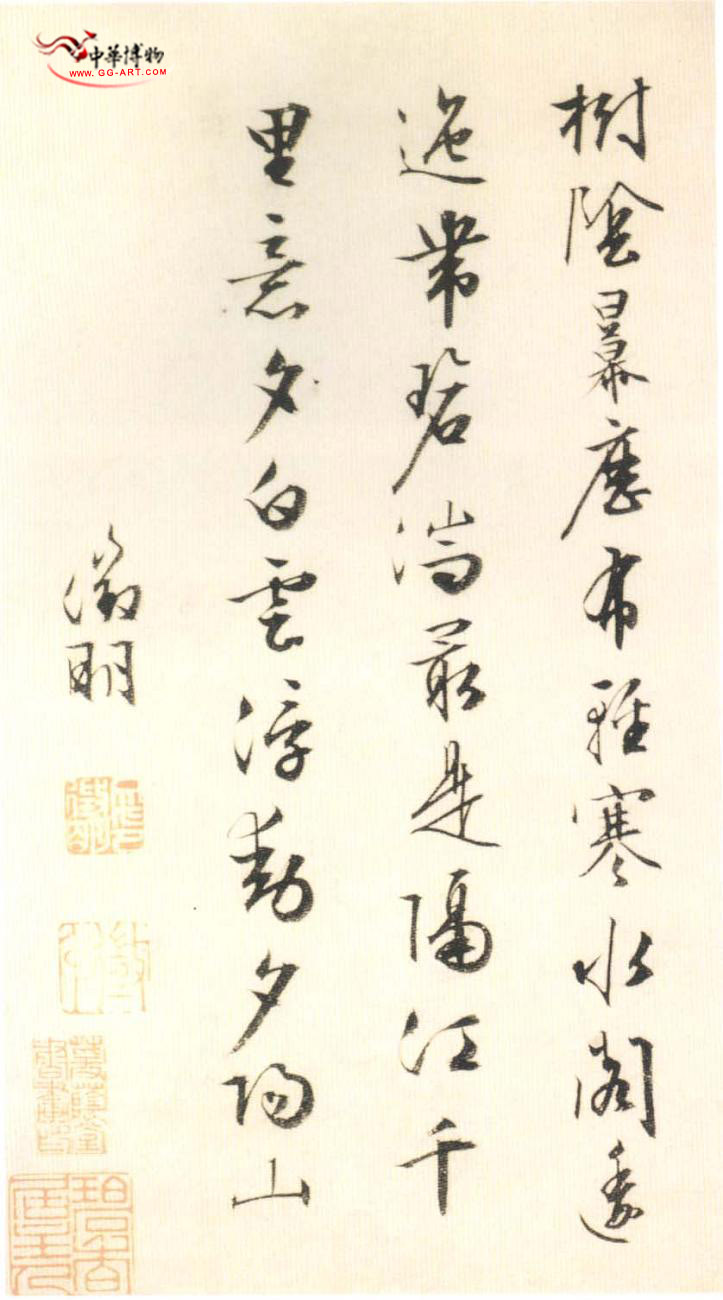 中華博物
WWW.GG-ART.COM
樹陰冪歷布輕寒水閣逶
迤帶碧湍最是隔江千
里意夕白雲浮動夕陽山
徵明